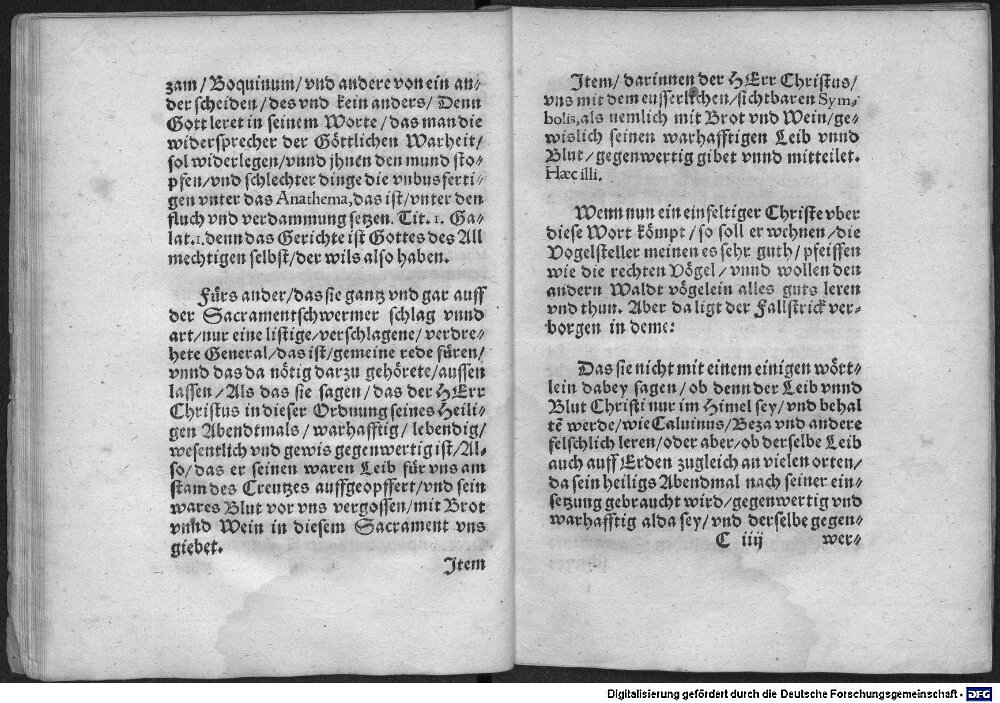 zam/ Boquinum/ vnd andere von ein an⸗
der scheiden/ des vnd kein anders/ Denn
Gott leret in seinem Worte/ das man die
widersprecher der Göttlichen Warheit/
sol widerlegen/ vnnd jhnen den mund sto⸗
pfen/ vnd schlechter dinge die vnbusferti⸗
gen vnter das Anathema, das ist/ vnter den
fluch vnd verdammung setzen. Tit. 1. Ga⸗
lat. 1. denn das Gerichte ist Gottes des All
mechtigen selbst/ der wils also haben.
Fürs ander/ das sie gantz vnd gar auff
der Sacramentschwermer schlag vnnd
art/ nur eine listige/ verschlagene/ verdre⸗
hete General/ das ist/ gemeine rede füren/
vnnd das da nötig darzu gehörete/ aussen
lassen/ Als das sie sagen/ das der HErr
Christus in dieser Ordnung seines Heili⸗
gen Abendtmals/ warhafftig/ lebendig/
wesentlich vnd gewis gegenwertig ist/ Al⸗
so/ das er seinen waren Leib für vns am
stam des Creutzes auffgeopffert/ vnd sein
wares Blut vor vns vergossen/ mit Brot
vnnd Wein in diesem Sacrament vns
giebet.
Item
Item/ darinnen der HErr Christus/
vns mit dem eusserlichen/ sichtbaren Sym⸗
bolis, als nemlich mit Brot vnd Wein/ ge⸗
wislich seinen warhafftigen Leib vnnd
Blut/ gegenwertig gibet vnnd mitteilet.
Hæc illi.
Wenn nun ein einfeltiger Christe vber
diese Wort kömpt/ so soll er wehnen/ die
Vogelsteller meinen es sehr guth/ pfeiffen
wie die rechten Vögel/ vnnd wollen den
andern Waldt vögelein alles guts leren
vnd thun. Aber da ligt der Fallstrick ver⸗
borgen in deme:
Das sie nicht mit einem einigen wört⸗
lein dabey sagen/ ob denn der Leib vnnd
Blut Christi nur im Himel sey/ vnd behal
tē werde/ wie Caluinus/ Beza vnd andere
felschlich leren/ oder aber/ ob derselbe Leib
auch auff Erden zugleich an vielen orten/
da sein heiligs Abendmal nach seiner ein⸗
setzung gebraucht wird/ gegenwertig vnd
warhafftig alda sey/ vnd derselbe gegen⸗
C iiij wer⸗
Digitalisierung gefördert durch die Deutsche Forschungsgemeinschaft - DFG